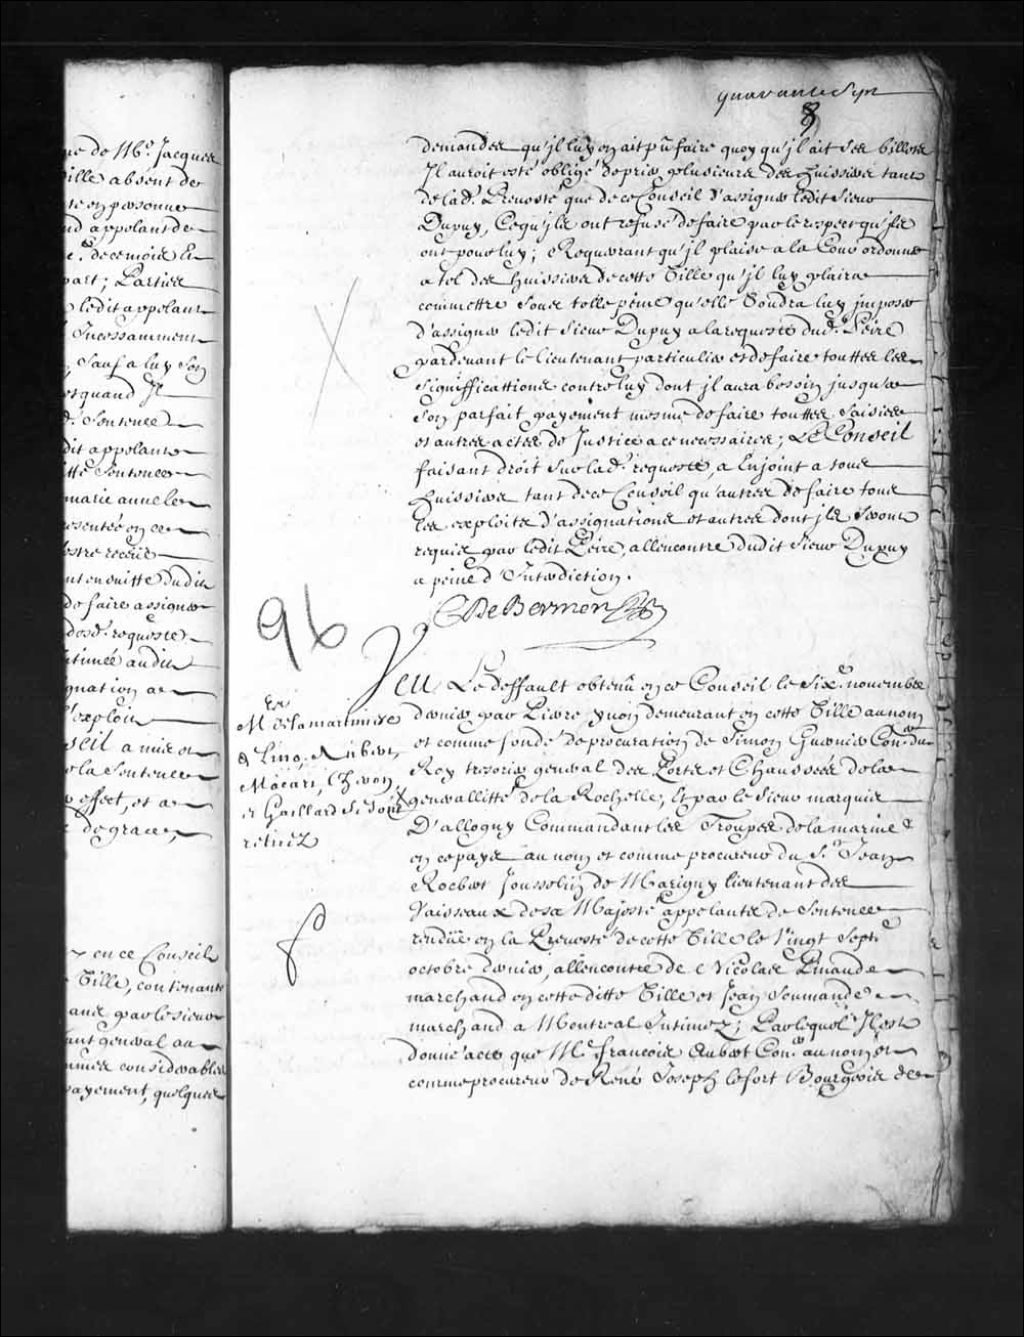 quarante Sept
8
demander qu'jl luy en ait pû faire quoy qu'jl ait ses billets
Il auroit esté obligé de prier plusieurs des huissiers tant
de lad. Prevosté que de ce Conseil d'assigner ledit sieur
Dupuy, Ce qu'jls ont refusé de faire par le respect qu'jls
ont pour luy; Requerant qu'jl plaise a la Cour ordonner
a tel des huissiers de cette Ville qu'jl luy plaira
commettre sous telle peine qu'elle Voudra luy jmposer
d'assigner ledit sieur Dupuy a la requeste dud. Peire
pardevant le lieutenant particulier et de faire touttes les
Signiffications contre luy dont jl aura besoin jusqu'a
Son parfait payement mesme de faire touttes Saisies
et autres actes de Justice a ce necessaires; Le Conseil
faisant droit Sur lad. requeste, a Enjoint a tous
huissiers tant de ce Conseil qu'autres de faire tous
les exploits d'assignations et autres dont jls Seront
requis par ledit Peire, allencontre dudit Sieur Dupuy
a peine d'Interdiction.
C De Bermen
96
Veu Le deffault obtenû en ce Conseil le Six.e novembre
dernier par Pierre yvon demeurant en cette Ville au nom
et comme fondé de procuration de Simon Guernier Con.er du
Roy tresorier general des Ports et Chaussées de la
generallitté de la Rochelle, Et par le Sieur marquis
D'allogny Commandant les Trouppes de la marine
en ce pays au nom et comme procureur du S.r Jean
Rocbert Jousselin de Marigny lieutenant des
Vaisseaux de sa Majesté appelants de Sentence
rendüe en la Prevosté de cette Ville le Vingt Sept.e
octobre dernier, allencontre de Nicolas Pinaud
marchand en cette ditte Ville et Jean Soumande
marchand a Montreal Intimez; Par lequel Il est
donné acte que M.e francois Aubert Con.er au nom et
comme procureur de René Joseph lefort Bourgeois de
M.rs delamartiniere
de Lino, Aubert,
Macart, Cheron
et Gaillard Se sont
retirez
ue de M.e Jacques
Ville absent de
te en personne
nd appelant de
decembre
part; Parties
ledit appelant
Incessamment
Sauf a luy Son
et quand Il
Sentence
dit appelant
tte Sentence
marie anne le
esentée en ce
estre receüe
de faire assigner
requeste
timée audit
gnation a
l'exploit
seil a mis et
la Sentence
effect, et a
de grace,
en ce Conseil
Ville, contenant
par le sieur
ant general au
mmes considerables
payement, quelques